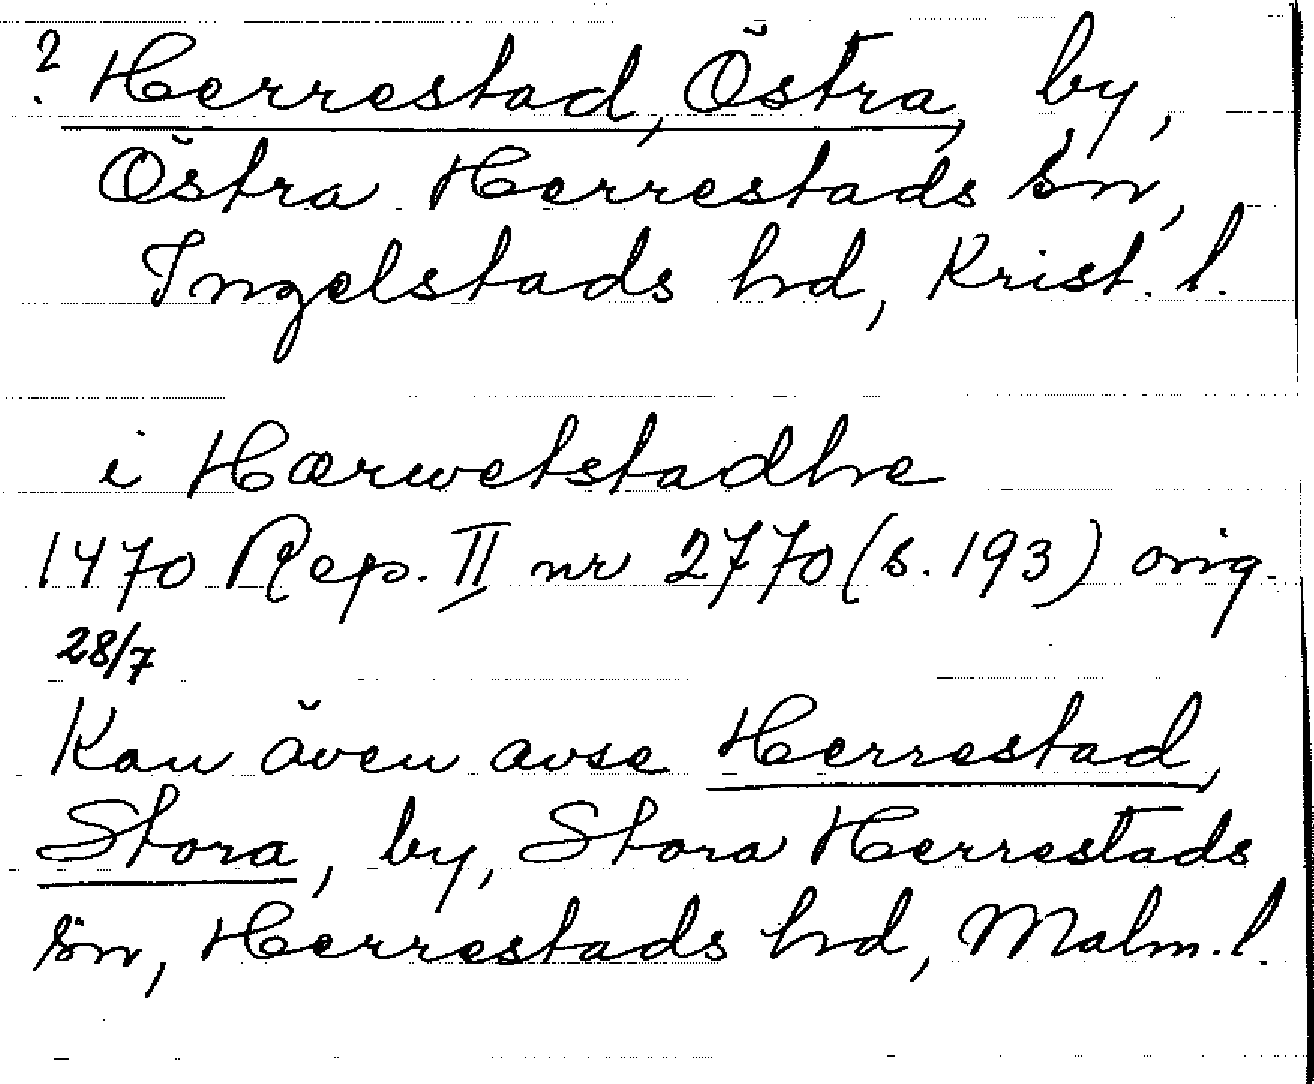 ? Herrestad, Östra, by,
Östra Herrestads sn,
Ingelstads hd, Krist. l.
i Hærwetstadhe
1470 Rep. II nr 2770 (s. 193) orig.
28/7
Kan även avse Herrestad,
Stora, by, Stora Herrestads
sn, Herrestads hd, Malm. l.